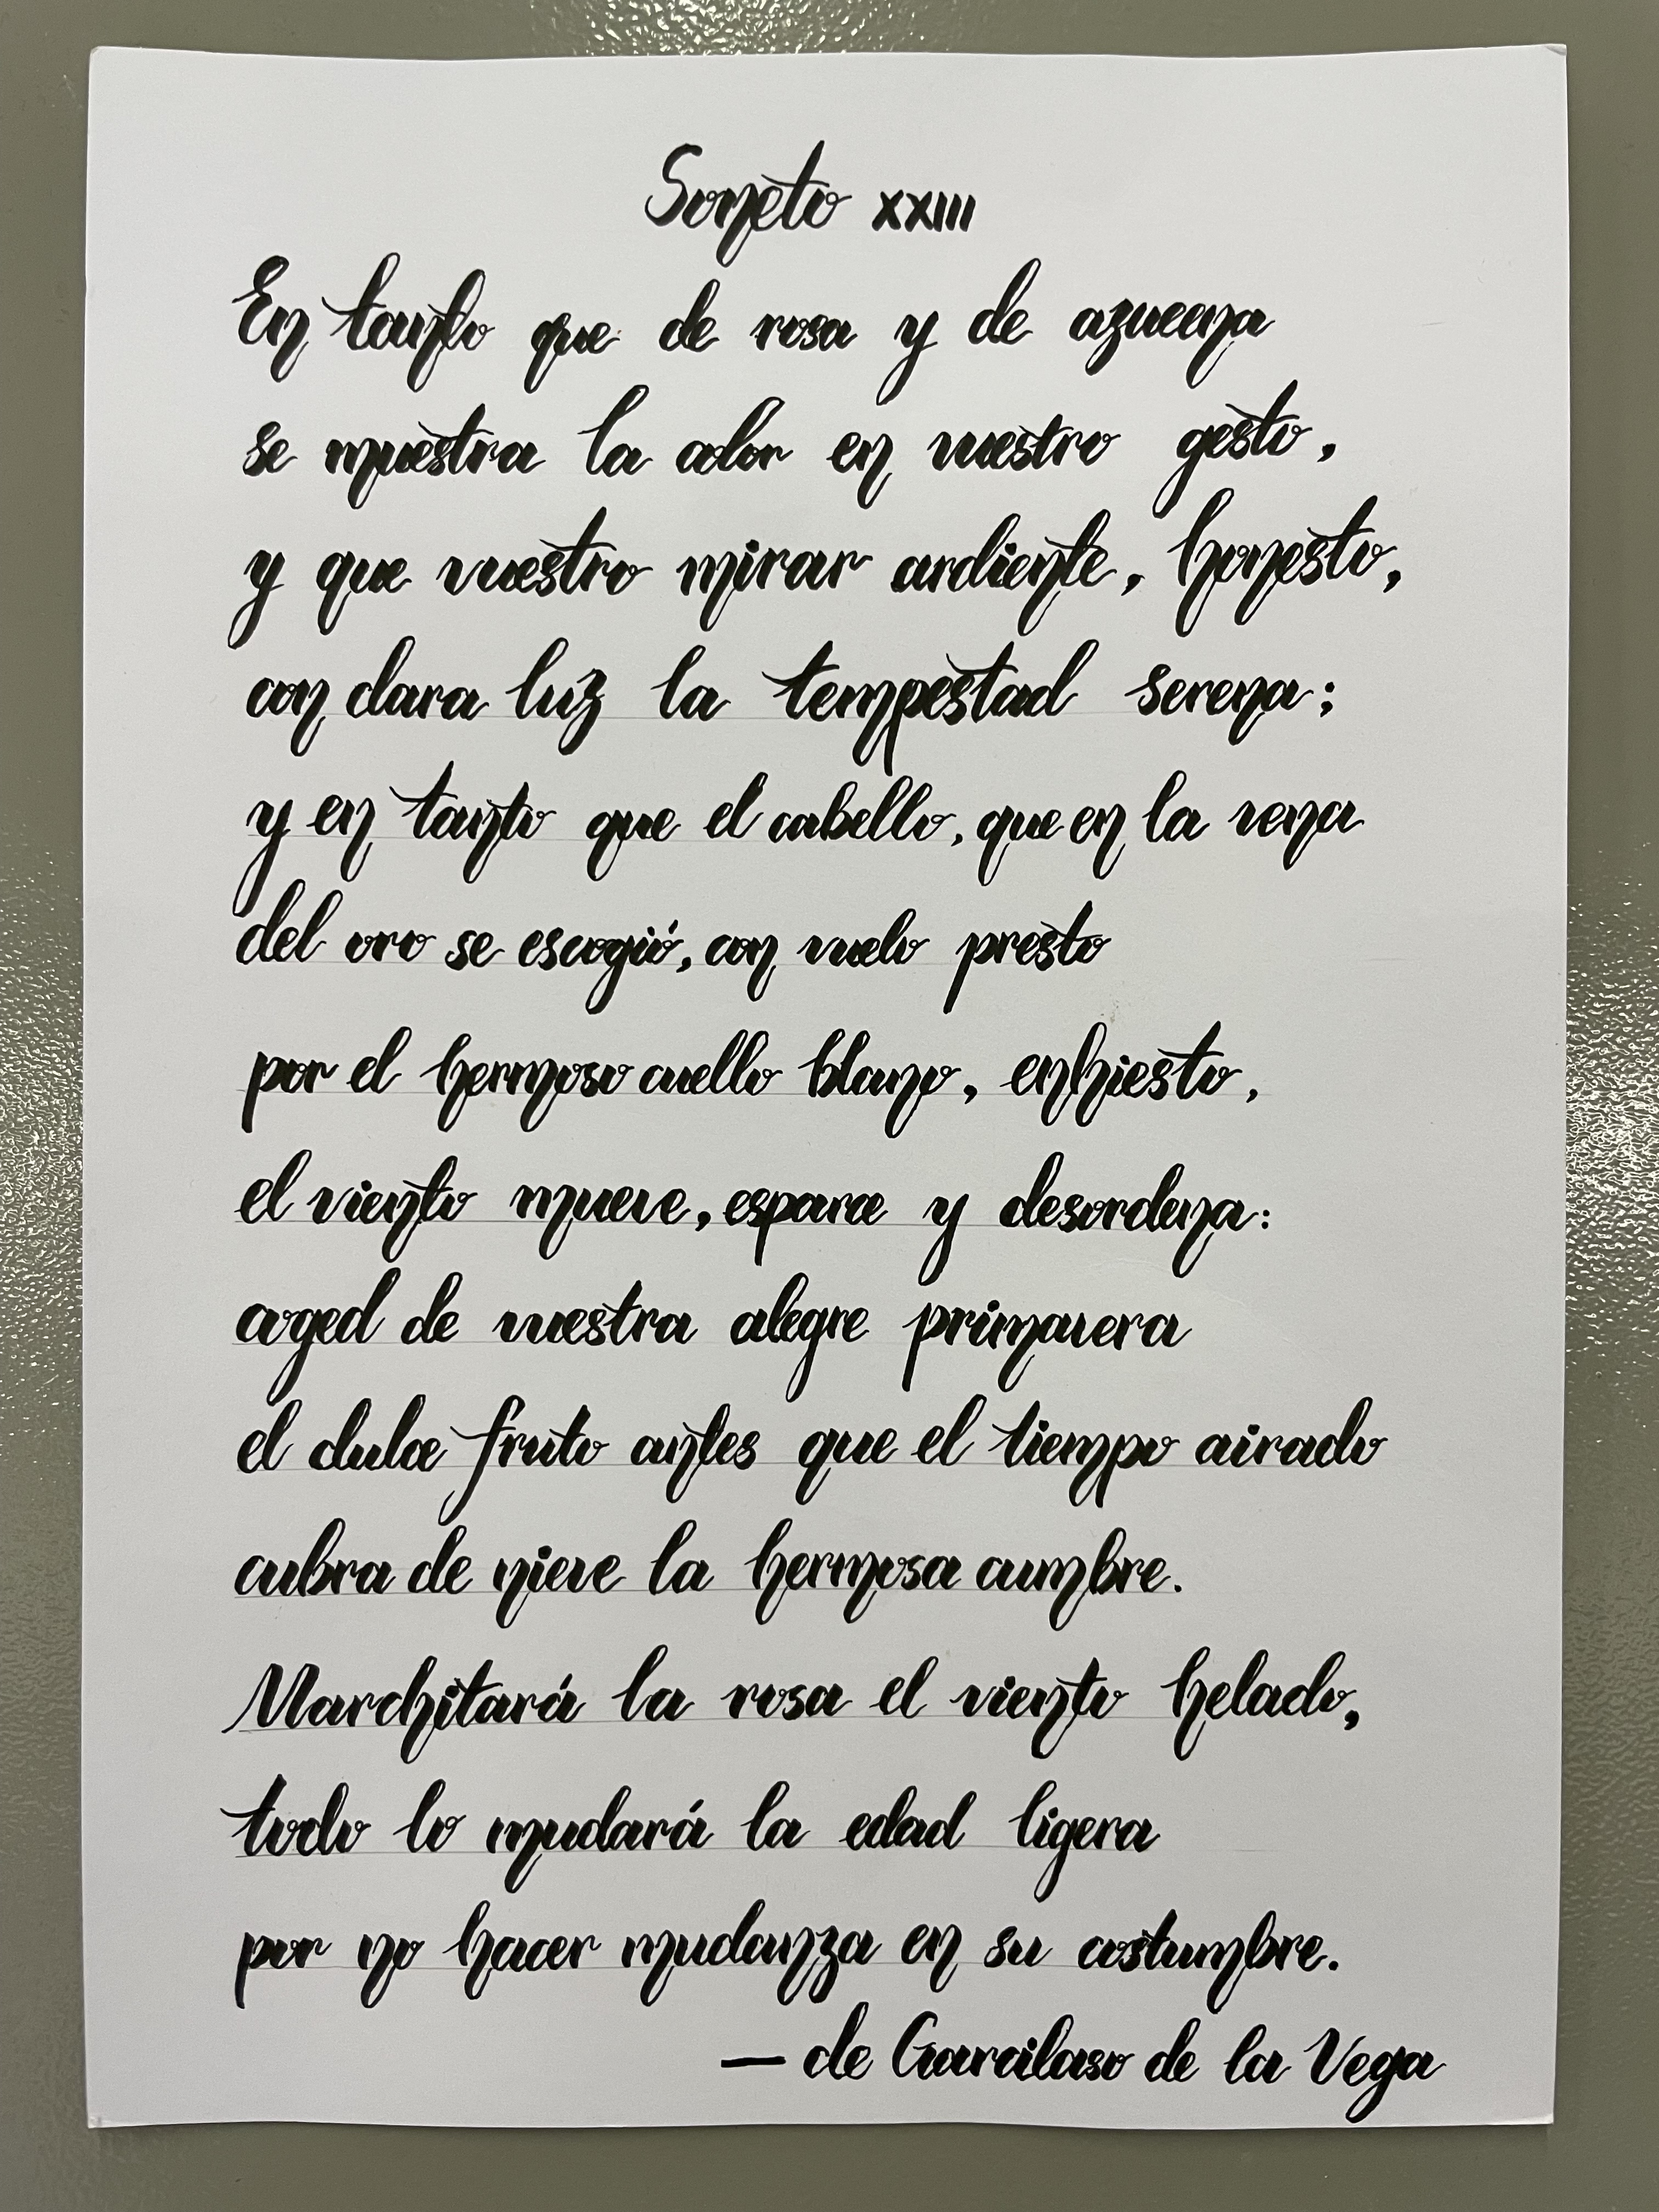 Soneto XXIII
En tanto que de rosa y de azucena
se muestra la color en vuestro gesto,
y que vuestro mirar ardiente, honesto,
con clara luz la tempestad serena;
y en tanto que el cabello, que en la vena
del oro se escogió, con vuelo presto
por el hermoso cuello blanco, enhiesto,
el viento mueve, esparce y desordena:
coged de vuestra alegre primavera
el dulce fruto antes que el tiempo airado
cubra de nieve la hermosa cumbre.
Marchitará la rosa el viento helado,
todo lo mudará la edad ligera
por no hacer mudanza en su costumbre.
— de Garcilaso de la Vega